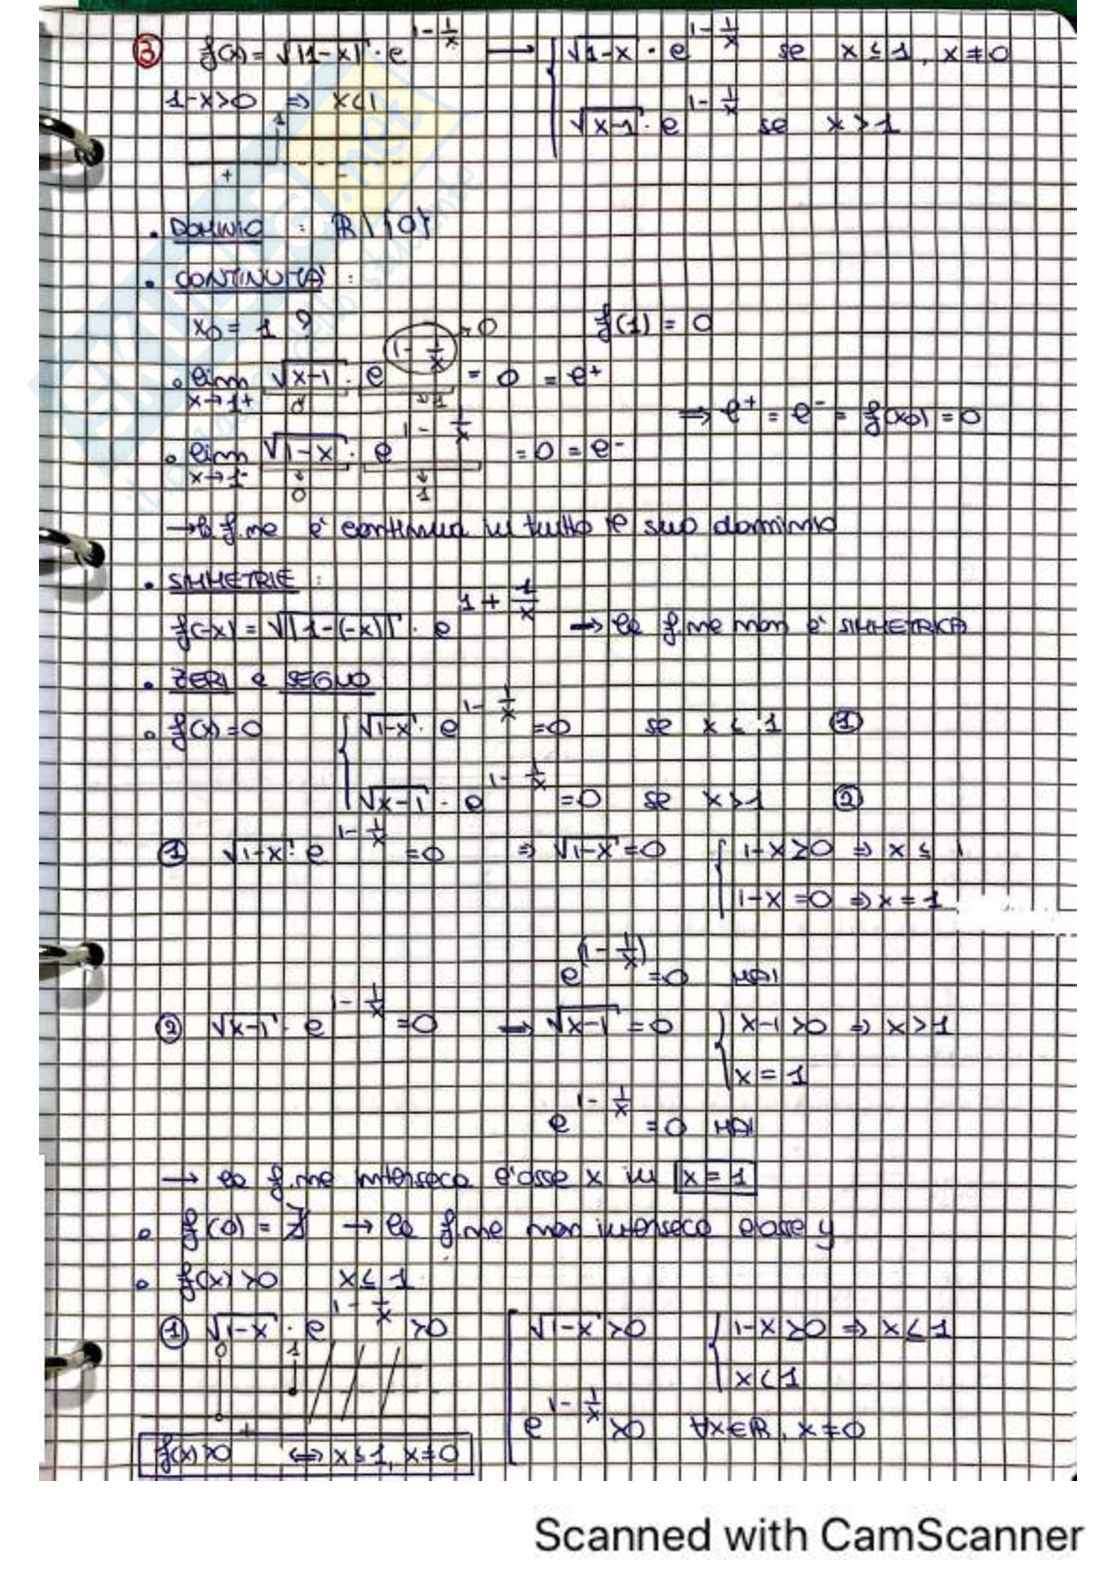 ③ f(x) = √|1-x| · e^{1-1/x} → { √1-x · e^{1-1/x} se x ≤ 1, x ≠ 0
1-x>0 ⇒ x<1
√x-1 · e^{1-1/x} se x > 1
1
+ -
• DOMINIO : ℝ\{0}
• CONTINUITÀ :
x₀ = 1 ? f(1) = 0
• lim x→1+ √x-1 · e^{1-1/x} = 0 = ℓ+
→0
0 →1
⇒ ℓ+ = ℓ- = f(x₀) = 0
• lim x→1- √1-x · e^{1-1/x} = 0 = ℓ-
0 1
→ la f.ne è continua in tutto il suo dominio
• SIMMETRIE :
f(-x) = √|1-(-x)| · e^{1+1/x} → la f.ne non è SIMMETRICA
• ZERI e SEGNO
• f(x)=0 { √1-x · e^{1-1/x} =0 se x ≤ 1 ①
√x-1 · e^{1-1/x} =0 se x>1 ②
① √1-x · e^{1-1/x} =0 ⇒ √1-x =0 { 1-x≥0 ⇒ x ≤ 1
1-x =0 ⇒ x = 1
e^{(1-1/x)} =0 MAI
② √x-1 · e^{1-1/x} =0 → √x-1 =0 { x-1>0 ⇒ x>1
x = 1
e^{1-1/x} =0 MAI
→ la f.ne interseca l'asse x in x = 1
• f(0) = ∄ → la f.ne non interseca l'asse y
• f(x)>0 x≤1
① √1-x · e^{1-1/x} >0 { √1-x >0 { 1-x≥0 ⇒ x≤1
0 1
x<1
+
e^{1-1/x} >0 ∀x∈ℝ, x≠0
f(x)>0 ⇔ x≤1, x≠0
Scanned with CamScanner